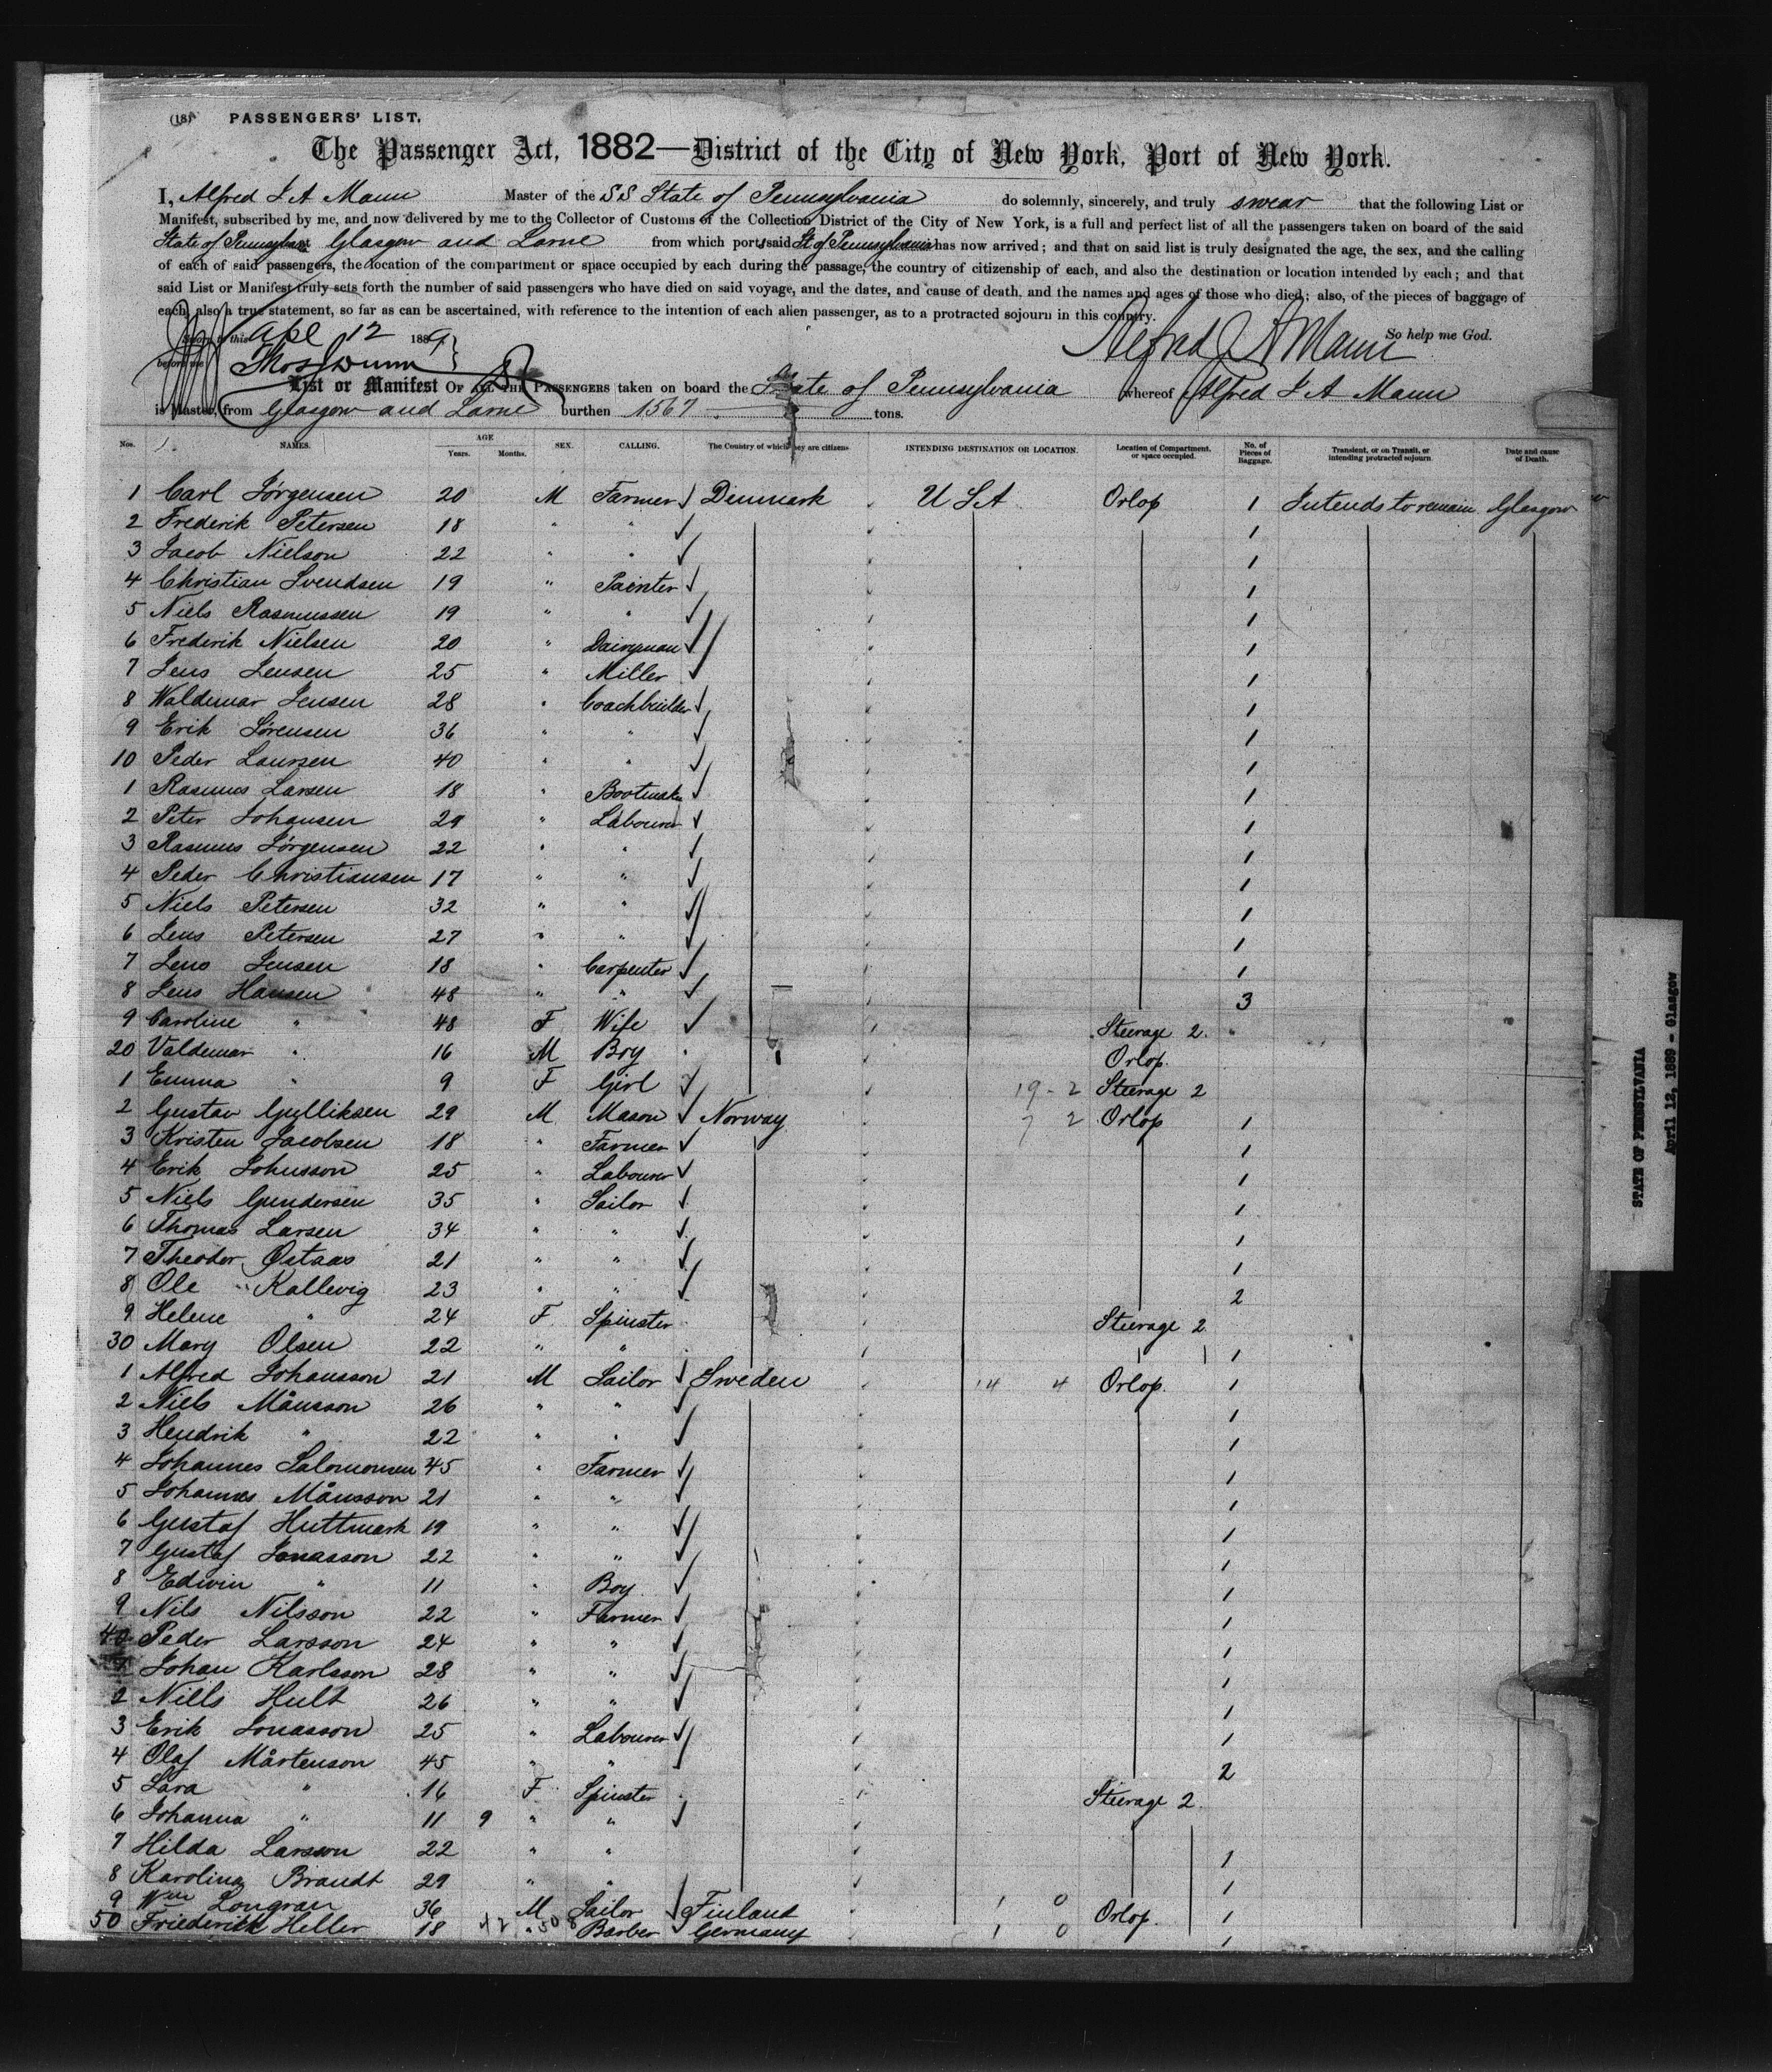 (18) PASSENGERS' LIST.
The Passenger Act, 1882—District of the City of New York, Port of New York.
I, Alfred J A Mann Master of the SS State of Pennsylvania do solemnly, sincerely, and truly swear that the following List or
Manifest, subscribed by me, and now delivered by me to the Collector of Customs of the Collection District of the City of New York, is a full and perfect list of all the passengers taken on board of the said
State of Pennsylvania Glasgow and Larne from which port/s said St of Pennsylvania has now arrived; and that on said list is truly designated the age, the sex, and the calling
of each of said passengers, the location of the compartment or space occupied by each during the passage, the country of citizenship of each, and also the destination or location intended by each; and that
said List or Manifest truly sets forth the number of said passengers who have died on said voyage, and the dates, and cause of death, and the names and ages of those who died; also, of the pieces of baggage of
each, also a true statement, so far as can be ascertained, with reference to the intention of each alien passenger, as to a protracted sojourn in this country.
Sworn to this Apl 12 1889 Alfred J A Mann So help me God.
before me Thos Dunn
List or Manifest OF ALL THE PASSENGERS taken on board the State of Pennsylvania whereof Alfred J A Mann
is Master, from Glasgow and Larne burthen 1567 tons.
Nos. NAMES. AGE Years. Months. SEX. CALLING. The Country of which they are citizens INTENDING DESTINATION OR LOCATION. Location of Compartment, or space occupied. No. of Pieces of Baggage. Transient, or on Transit, or intending protracted sojourn. Date and cause of Death.
1 Carl Jørgensen 20 M Farmer Denmark U S A Orlop 1 Intends to remain Glasgow
2 Frederik Petersen 18 " " 1
3 Jacob Nielson 22 " " 1
4 Christian Svendsen 19 " Painter 1
5 Niels Rasmussen 19 " " 1
6 Frederik Nielsen 20 " Dairyman 1
7 Jens Jensen 25 " Miller 1
8 Waldemar Jensen 28 " Coachbuilder 1
9 Erik Sørensen 36 " " 1
10 Peder Laursen 40 " " 1
1 Rasmus Larsen 18 " Bootmaker 1
2 Peter Johansen 29 " Labourer 1
3 Rasmus Jørgensen 22 " " 1
4 Peder Christiansen 17 " " 1
5 Niels Petersen 32 " " 1
6 Jens Petersen 27 " " 1
7 Jens Jensen 18 " Carpenter 1
8 Jens Hansen 48 " " 3
9 Caroline " 48 F Wife Steerage 2. "
20 Valdemar " 16 M Boy Orlop
1 Emma " 9 F Girl 19 - 2 Steerage 2
2 Gustav Gylliksen 29 M Mason Norway 7 2 Orlop 1
3 Kristen Jacobsen 18 " Farmer 1
4 Erik Johnsson 25 " Labourer 1
5 Niels Gundersen 35 " Sailor 1
6 Thomas Larsen 34 " " 1
7 Theodor Ostaas 21 " " 1
8 Ole Kallevig 23 " " 2
9 Helene " 24 F Spinster Steerage 2
30 Mary Olsen 22 " " 1
1 Alfred Johansson 21 M Sailor Sweden 14 4 Orlop. 1
2 Niels Månsson 26 " " 1
3 Hendrik " 22 " " 1
4 Johannes Salomonsen 45 " Farmer 1
5 Johannes Månsson 21 " " 1
6 Gustaf Huttmark 19 " " 1
7 Gustaf Jonasson 22 " " 1
8 Edwin " 11 " Boy 1
9 Nils Nilsson 22 " Farmer 1
40 Peder Larsson 24 " " 1
1 Johan Karlsson 28 " " 1
2 Nills Hult 26 " " 1
3 Erik Jonasson 25 " Labourer 1
4 Olaf Mårtenson 45 " " 2
5 Sara " 16 F Spinster Steerage 2.
6 Johanna " 11 9 " "
7 Hilda Larsson 22 " " 1
8 Karolina Brandt 29 " " 1
9 Wm Longran 36 M Sailor Finland 1 0 Orlop. 1
50 Friederich Heller 18 " Barber Germany 1 0 1
STATE OF PENNSYLVANIA
April 12, 1889 - Glasgow